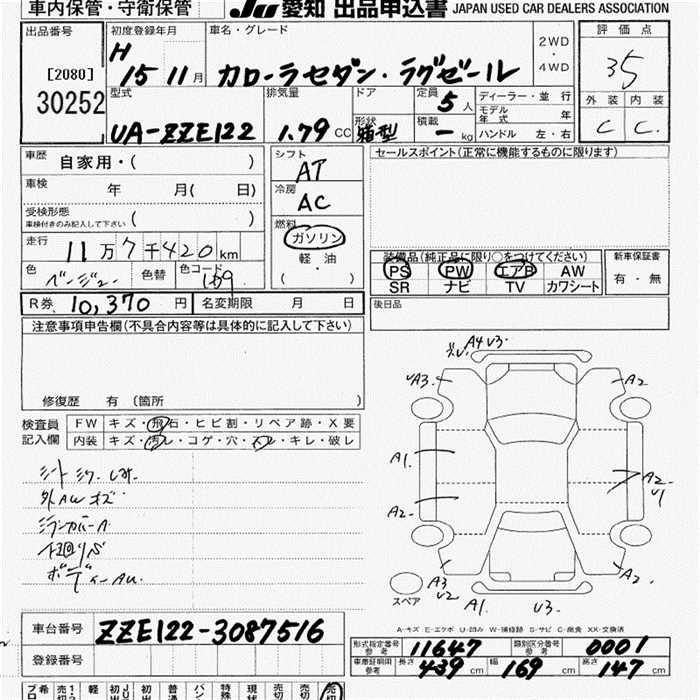 車内保管・守衛保管 JU 愛知 出品申込書 JAPAN USED CAR DEALERS ASSOCIATION
出品番号 初度登録年月 車名・グレード 2WD・4WD 評価点
[2080] H 15 11月 カローラセダン・ラグゼール 3.5
30252 型式 排気量 ドア 定員 5人 ディーラー・並行 外装 内装
形状 積載 モデル年式 年
UA-ZZE122 1.79 CC 箱型 — kg ハンドル 左・右 C C
車歴 自家用・( ) シフト AT セールスポイント(正常に機能するものに限ります)
車検 年 月( 日) 冷房 AC
受検形態 ( )
車検付きのみ記入して下さい
燃料 ガソリン
走行 11万7千420km 軽・油
( )
装備品(純正品に限り○をつけてください) 新車保証書
PS PW エアB AW 有・無
SR ナビ TV カワシート
色 ベージュー 色替 色コード
R券 10,370円 名変期限 月 日 後日品
注意事項申告欄(不具合内容等は具体的に記入して下さい)
修復歴 有 (箇所 )
検査員記入欄 FW キズ・飛石・ヒビ割・リペア跡・X要
内装 キズ・汚レ・コゲ・穴・スレ・キレ・破レ
A4 U3.
A3 A2
A1. A2
U1
A2-
A3 U2 A2
A1. U3.
スペア
外AWキズ
ミラーカバーA
A-キズ E-エクボ U-凹ミ W-補修跡 S-サビ C-腐食 XX-交換済
車台番号 ZZE122-3087516
登録番号
形式指定番号 参考 11647 類別区分番号 参考 0001
車庫証明用 参考 長さ 439cm 幅 169cm 高さ 147cm